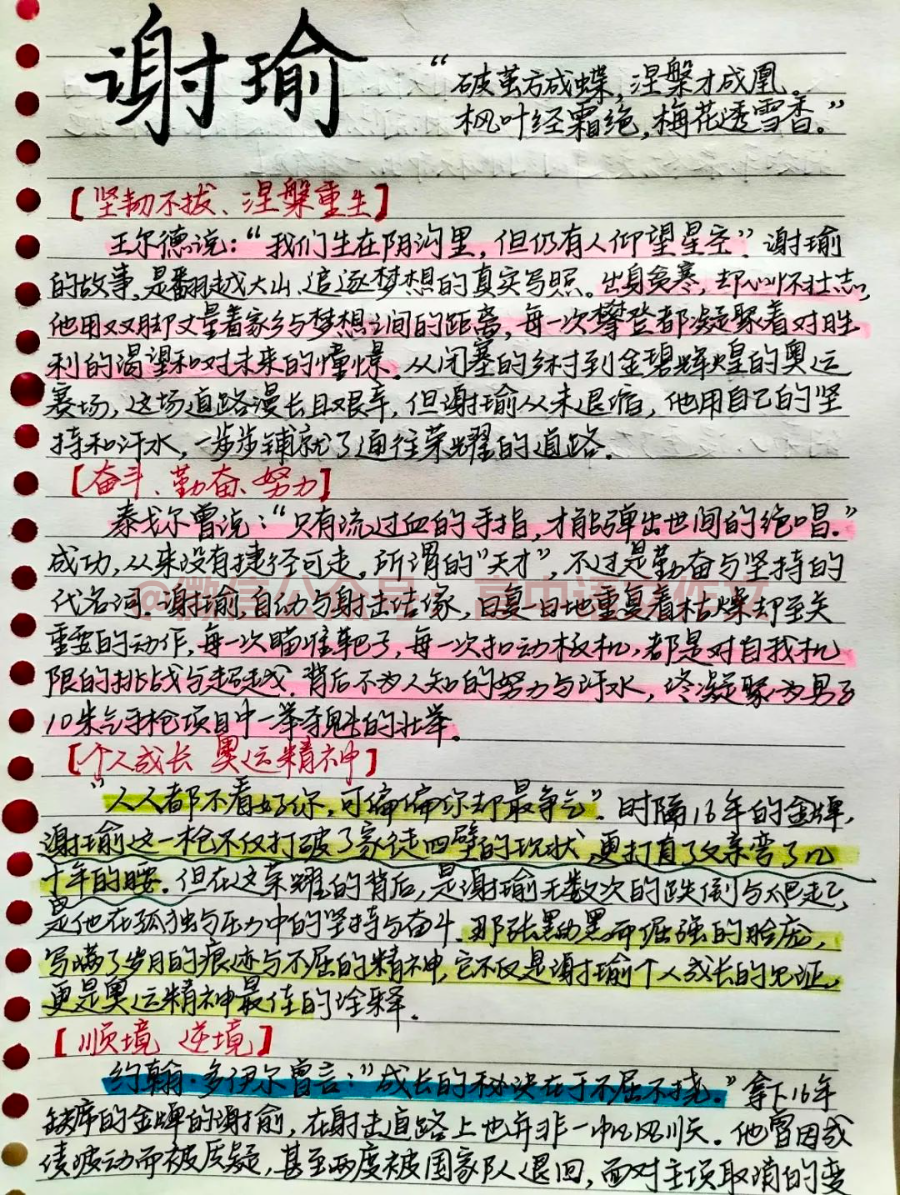 谢瑜
“破茧方成蝶，涅槃才成凰。
枫叶经霜绝，梅花透雪香。”
【坚韧不拔、涅槃重生】
王尔德说：“我们生在阴沟里，但仍有人仰望星空”。谢瑜
的故事，是翻越大山、追逐梦想的真实写照。出身贫寒，却心怀壮志，
他用双脚丈量着家乡与梦想之间的距离，每一次攀登都凝聚着对胜
利的渴望和对未来的憧憬。从闭塞的乡村到金碧辉煌的奥运
赛场，这场道路漫长且艰辛，但谢瑜从未退缩，他用自己的坚
持和汗水，一步步铺就了通往荣耀的道路．
【奋斗、勤奋、努力】
泰戈尔曾说：“只有流过血的手指，才能弹出世间的绝唱。”
成功，从来没有捷径可走。所谓的“天才”，不过是勤奋与坚持的
代名词．谢瑜自幼与射击结缘，日复一日地重复着枯燥却至关
重要的动作，每一次瞄准靶子，每一次扣动板机，都是对自我机
限的挑战与超越．背后不为人知的努力与汗水，终凝聚为男子
10米气手枪项目中一举夺魁的壮举。
@微信公众号：高中语文作文
【个人成长 奥运精神】
“人人都不看好你，可偏偏你却最争气”．时隔16年的金牌，
谢瑜这一枪不仅打破了家徒四壁的现状，更打直了父亲弯了几
十年的腰．但在这荣耀的背后，是谢瑜无数次的跌倒与爬起，
是他在孤独与压力中的坚持与奋斗．那张黝黑而倔强的脸庞，
写满了岁月的痕迹与不屈的精神，它不仅是谢瑜个人成长的见证，
更是奥运精神最佳的诠释．
【顺境 逆境】
约翰·多伊尔曾言：“成长的秘诀在于不屈不挠。”拿下16年
缺席的金牌的谢俞，在射击道路上也并非一帆风顺。他曾因成
绩波动而被质疑，甚至两度被国家队退回，面对主项取消的变